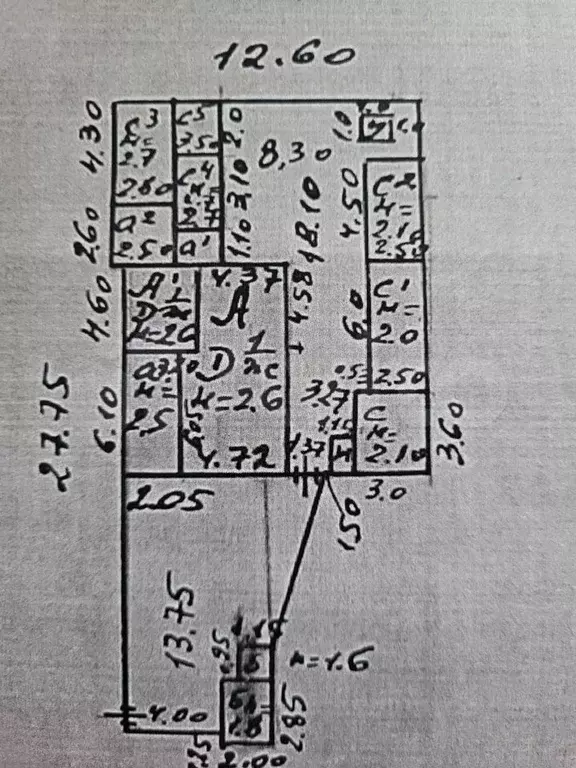 12.60
4.30
2.60
4.60
6.10
27.75
C³
н=
2.7
2.80
a²
2.50
C⁵
2.0
C⁴
н=
2.7
3.10
a¹
1.10
8,30
18.10
1.0
4.50
C²
н=
2.10
2.50
C¹
н=
2.0
6.0
2.50
C
н=
2.10
3.60
3.0
A¹
4.37
A
4.58
D
н=2.6
2.5
4.72
3.27
1.10
1.37
2.05
1.50
13.75
1.15
1.95
н=1.6
4.00
2.85
2.00